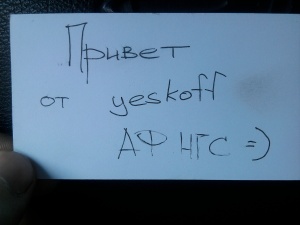 Привет
от yeskoff
АФ НГС =)